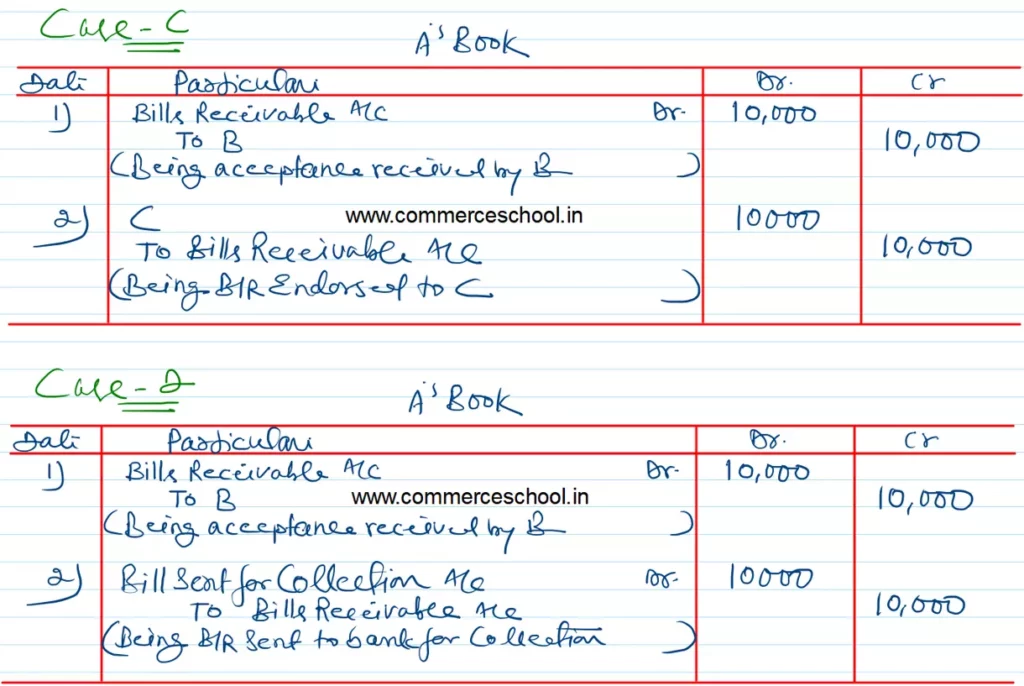 Case - C
A's Book
Date Particulars Dr. Cr
1) Bills Receivable A/C Dr. 10,000
To B 10,000
(Being acceptance received by B )
2) C www.commerceschool.in 10000
To Bills Receivable A/c 10,000
(Being B/R Endorsed to C )
Case - D
A's Book
Date Particulars Dr. Cr
1) Bills Receivable A/C Dr. 10,000
To B www.commerceschool.in 10,000
(Being acceptance received by B )
2) Bill Sent for Collection A/c Dr. 10000
To Bills Receivable A/c 10,000
(Being B/R Sent to bank for Collection )